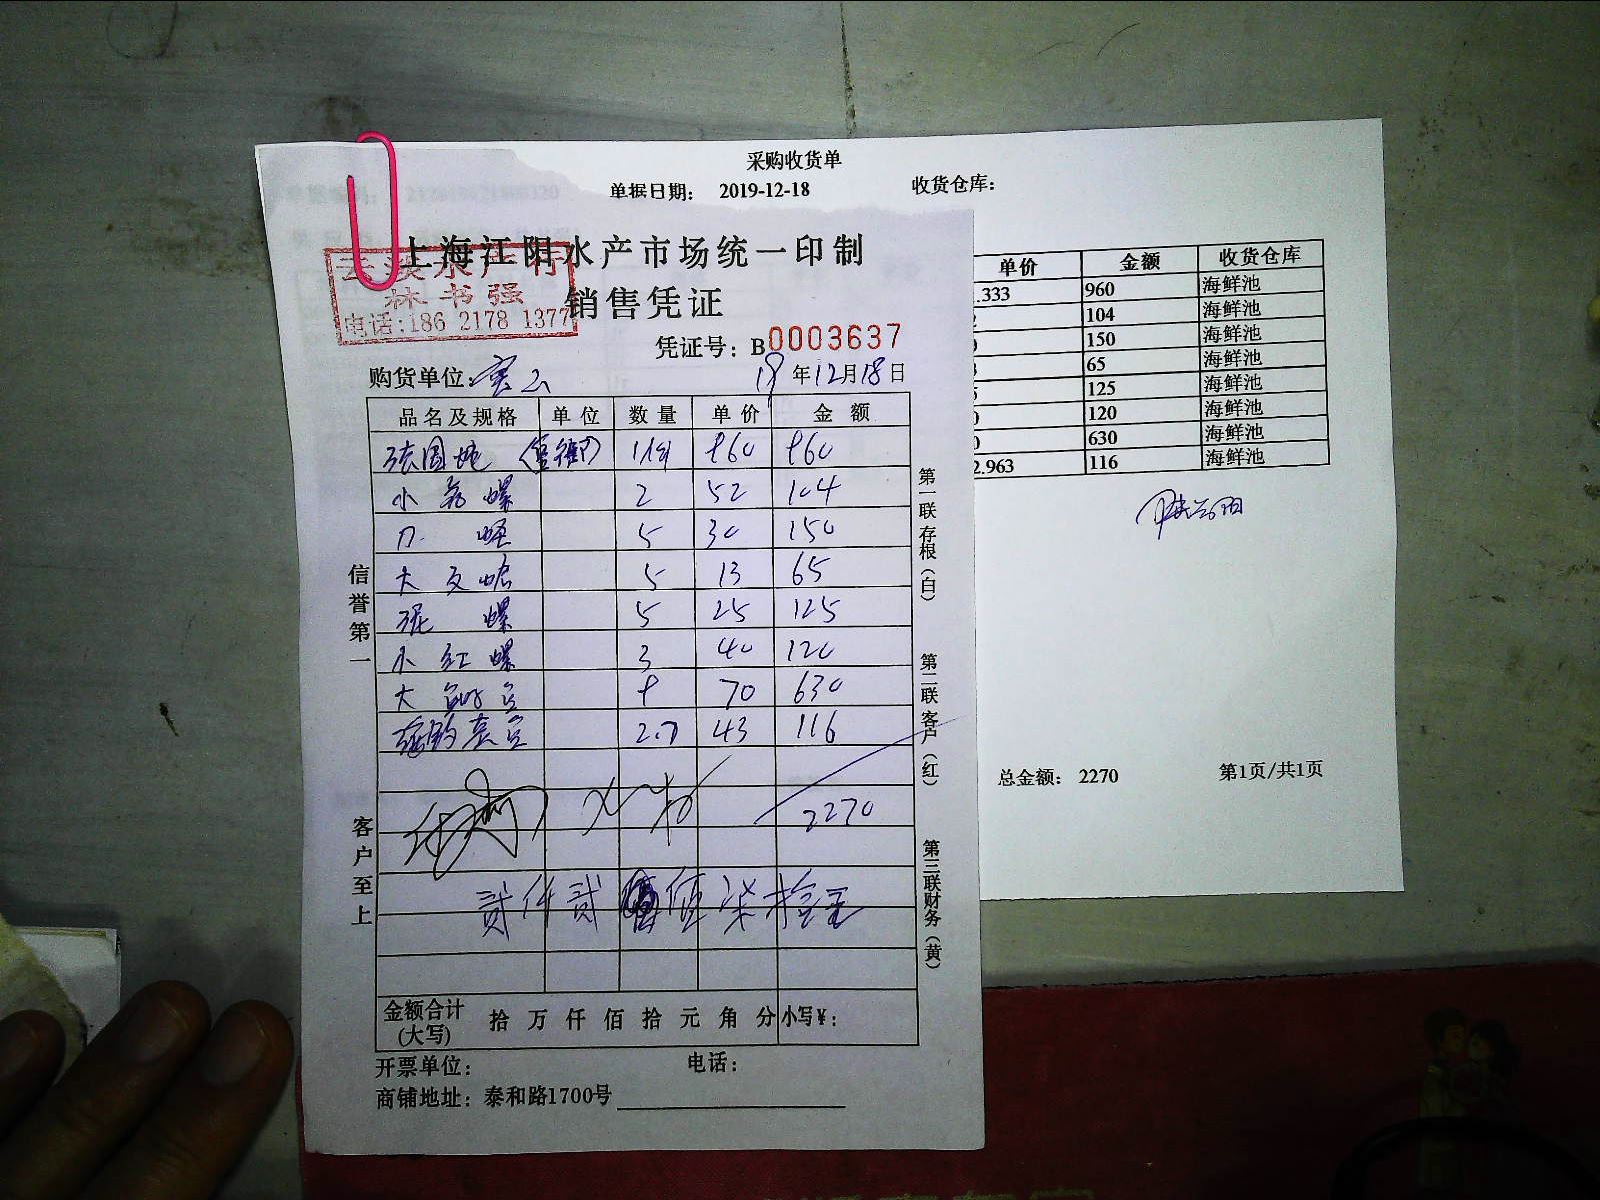 采购收货单
单据日期： 2019-12-18 收货仓库：
上海江阳水产市场统一印制
销售凭证
林书强
电话:186 2178 1377
凭证号：B0003637
购货单位: 19年12月18日
品名及规格 单位 数量 单价 金额
960 960
小 螺 2 52 104
刀 蛏 5 30 150
大 5 13 65
泥 螺 5 25 125
小 红 螺 3 40 120
大 9 70 630
2.7 43 116
2270
贰仟贰佰柒拾元
金额合计(大写) 拾 万 仟 佰 拾 元 角 分 小写¥：
开票单位： 电话：
商铺地址：泰和路1700号
信誉第一
客户至上
第一联存根（白）
第二联客户（红）
第三联财务（黄）
单价 金额 收货仓库
.333 960 海鲜池
104 海鲜池
150 海鲜池
65 海鲜池
125 海鲜池
120 海鲜池
630 海鲜池
2.963 116 海鲜池
总金额： 2270 第1页/共1页